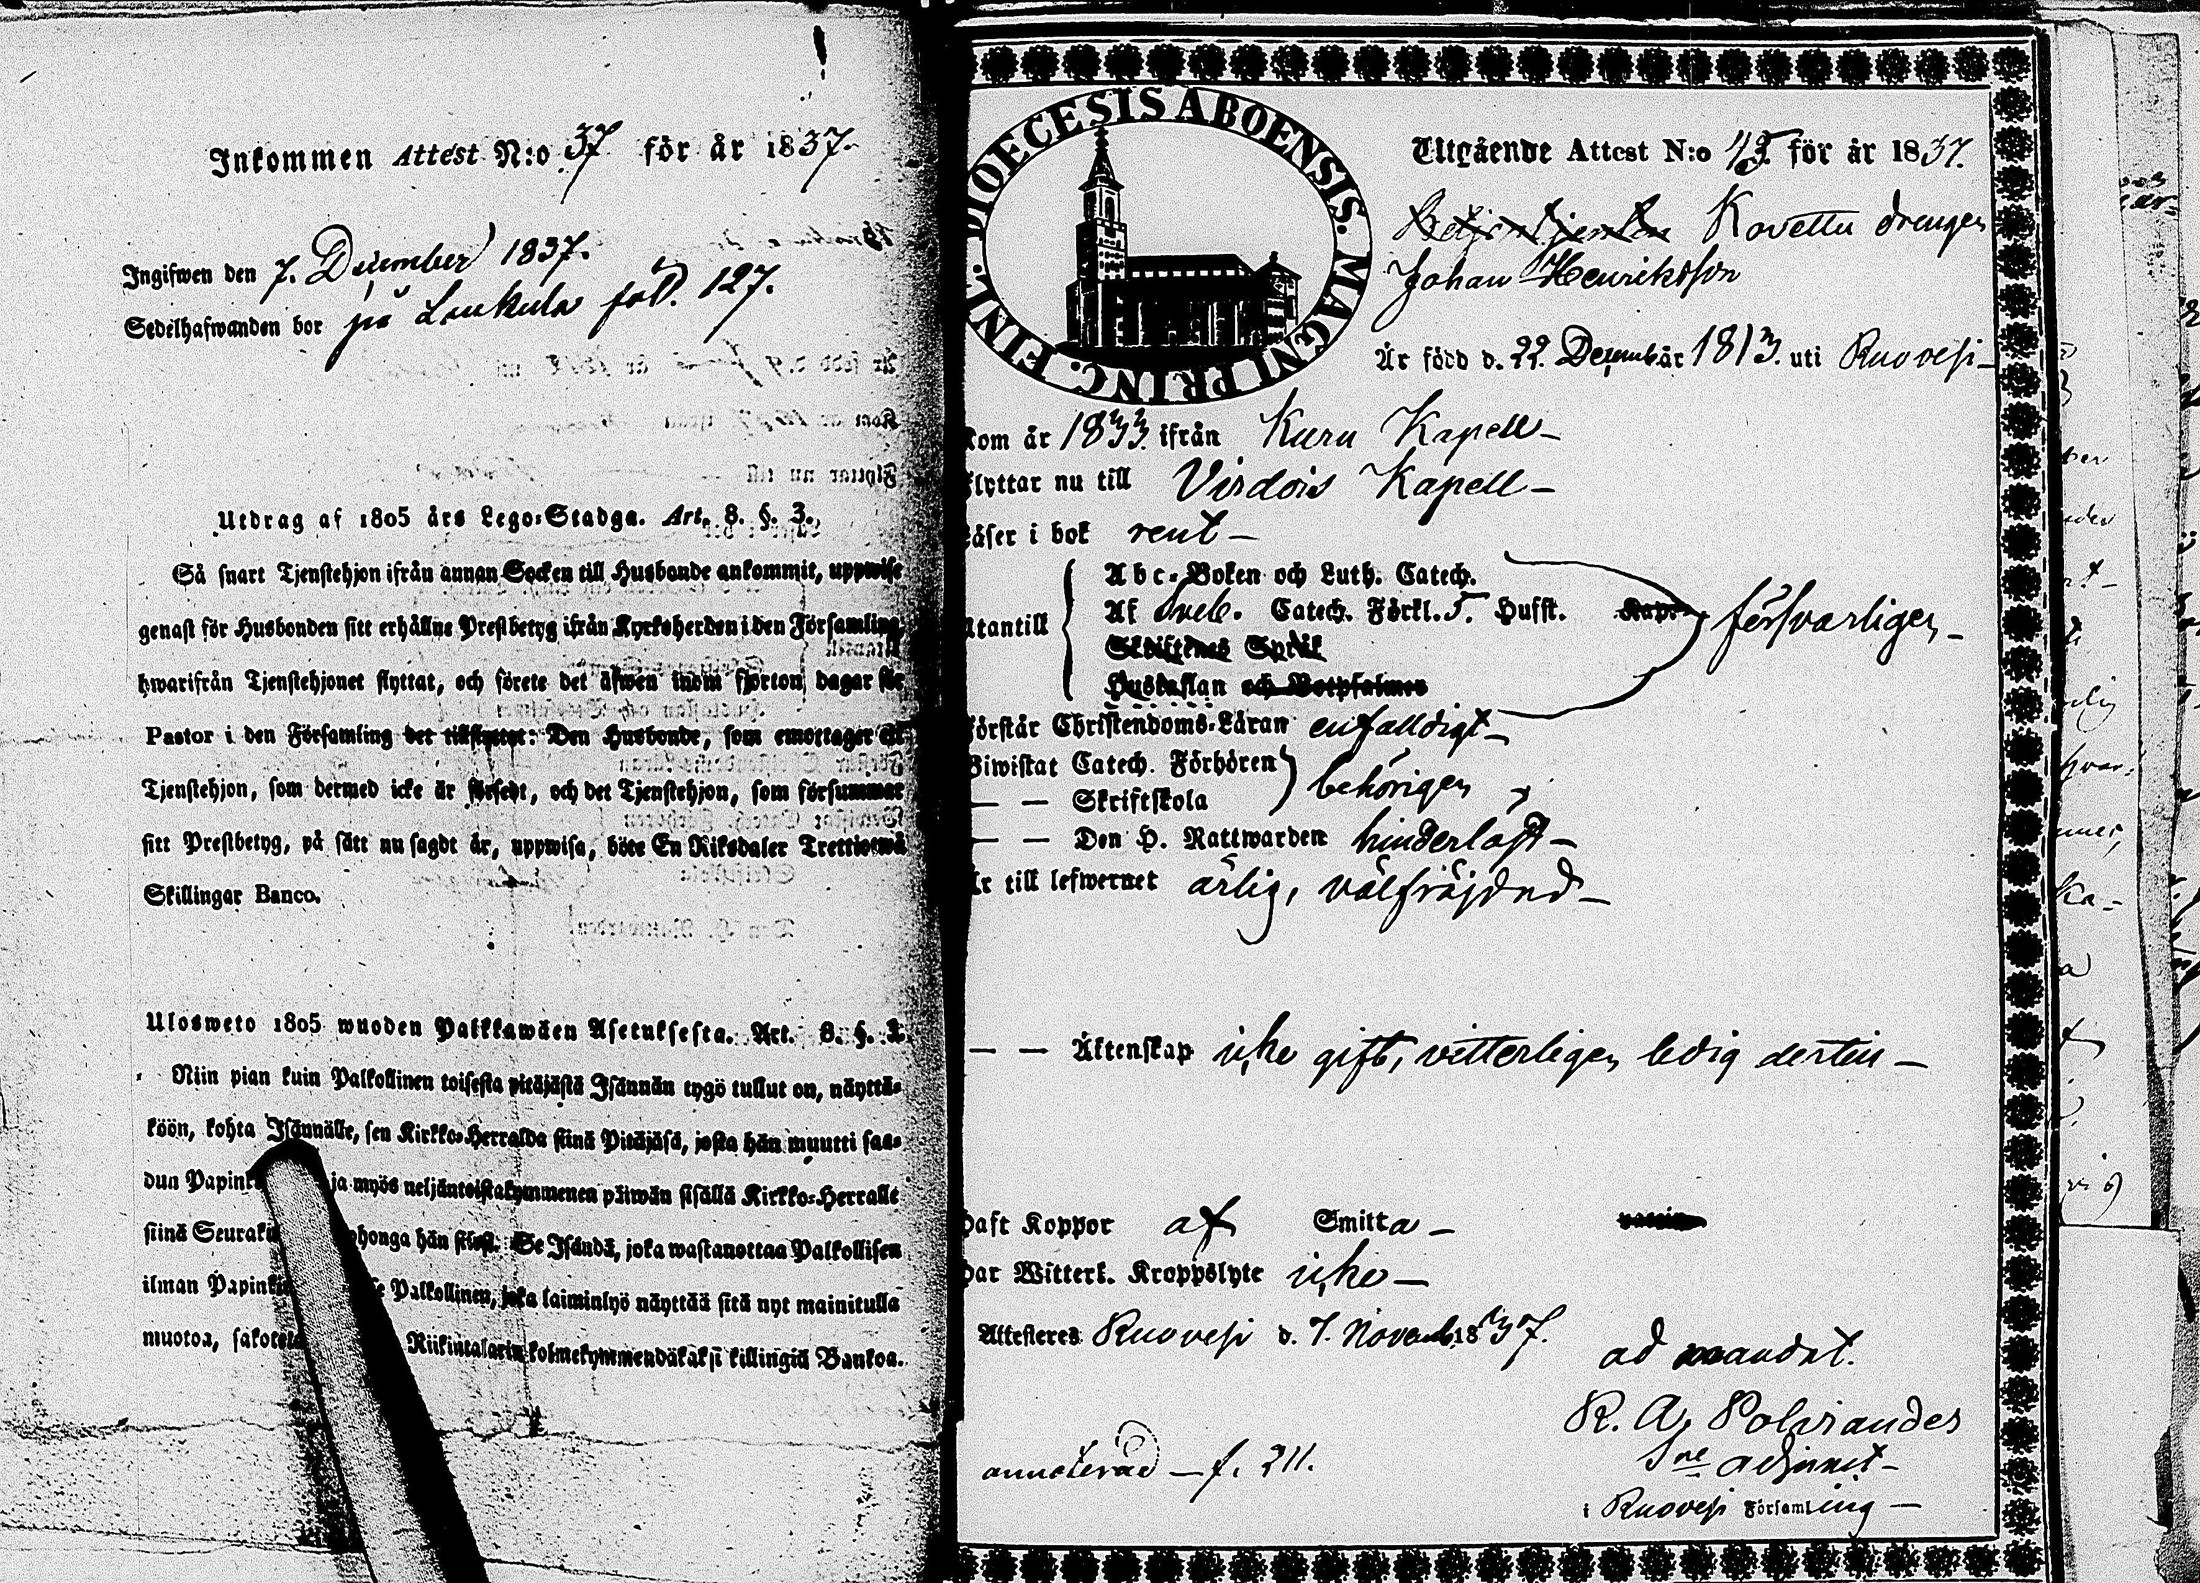 Inkommen Attest N:o 37 för år 1837.
Ingifwen den 7. December 1837.
Sedelhafwanden bor på Laukula fol. 127.
Utdrag af 1805 års Lego-Stadga. Art. 8. §. 3.
Så snart Tjenstehjon ifrån annan Socken till Husbonde ankommit, uppwise
genast för Husbonden sitt erhållne Prestbetyg ifrån Kyrkoherden i den Församling,
hwarifrån Tjenstehjonet flyttat, och förete det äfwen inom fjorton dagar för
Pastor i den Församling det tillflyttat: Den Husbonde, som emottager ett
Tjenstehjon, som dermed icke är försedt, och det Tjenstehjon, som försummar
sitt Prestbetyg, på sätt nu sagdt är, uppwisa, böte En Riksdaler Trettiotwå
Skillingar Banco.
Ulosweto 1805 wuoden Palkkawäen Asetuksesta. Art. 8. §. 3.
Niin pian kuin Palkollinen toisesta pitäjästä Isännän tygö tullut on, näyttä-
köön, kohta Isännälle, sen Kirkko-Herralda siinä Pitäjäsä, josta hän muutti saa-
dun Papink ja myös neljäntoistakymmenen päiwän sisällä Kirkko-Herralle
siinä Seuraku honga hän Se Isändä, joka wastanottaa Palkollisen
ilman Papink Palkollinen, joka laiminlyö näyttää sitä nyt mainitulla
muotoa, sakote Riikintalarin kolmekymmendäkaksi killingiä Bankoa.
DIOECESIS ABOENSIS. MAGNI PRINC. FINL.
Utgående Attest N:o 45. för år 1837.
Kovettu drengen
Johan Henriksson
Är född d. 22. December år 1813. uti Ruovesi
Kom år 1833. ifrån Kuru Kapell
Flyttar nu till Virdois Kapell
Läser i bok rent
Utantill
Abc-Boken och Luth. Catech.
Af Sveb. Catech. Förkl. 5. Hufst. Kap. försvarligen
Skriftenes Språk
Hustaflan och Botpsalmer
Förstår Christendoms-Läran enfalldigt
Biwistat Catech. Förhören
— — Skriftskola behörigen
— — Den H. Nattwarden hinderlöst
Är till lefwernet ärlig, välfräjdad
— — Äktenskap icke gift, vitterligen ledig dertill
Haft Koppor af Smitta
Har Witterl. Kroppslyte icke
Attesteras Ruovesi d. 7. Novemb. 1837.
ad mandat.
R. A. Polviander
adjunct
i Ruovesi Församling
annoterad f. 211.